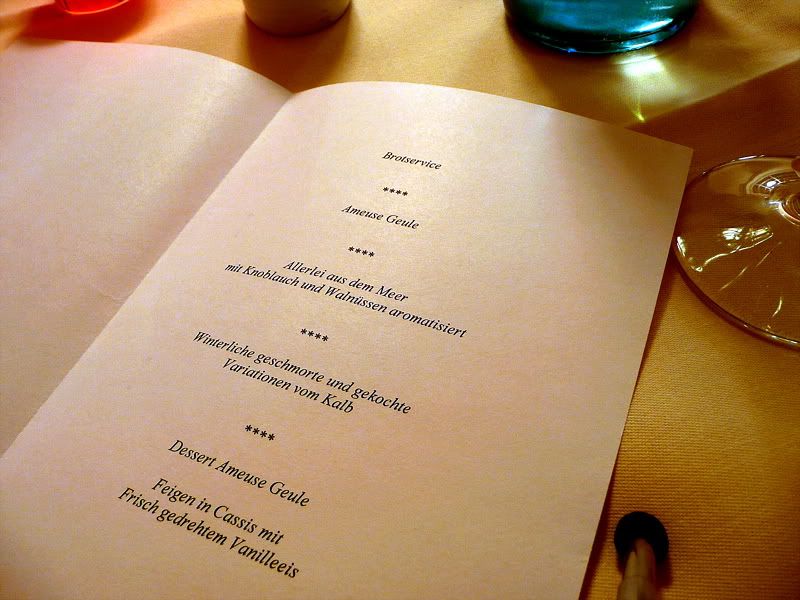 Brotservice
****
Ameuse Geule
****
Allerlei aus dem Meer
mit Knoblauch und Walnüssen aromatisiert
****
Winterliche geschmorte und gekochte
Variationen vom Kalb
****
Dessert Ameuse Geule
Feigen in Cassis mit
Frisch gedrehtem Vanilleeis